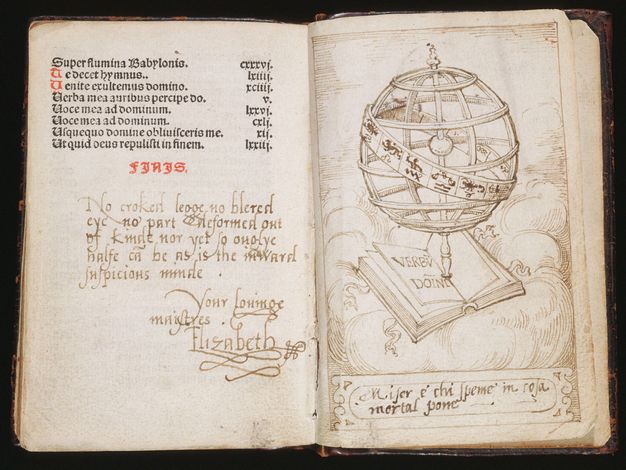 Super flumina Babylonis. cxxxvj.
Te decet hymnus.. lxiiij.
Uenite exultemus domino. xciiij.
Uerba mea auribus percipe do. v.
Uoce mea ad dominum. lxxvj.
Uoce mea ad dominum. cxlj.
Usquequo domine obliuisceris me. xij.
Ut quid deus repulisti in finem. lxxiij.
FINIS.
No croked legge no blered
eye no part deformed out
of kinde nor yet so ouglye
halfe cā be as is the inward
suspicious minde .
Your louinge
maistres
Elizabeth
VERBŪ
DOINI
Miser è chi speme in cosa
mortal pone